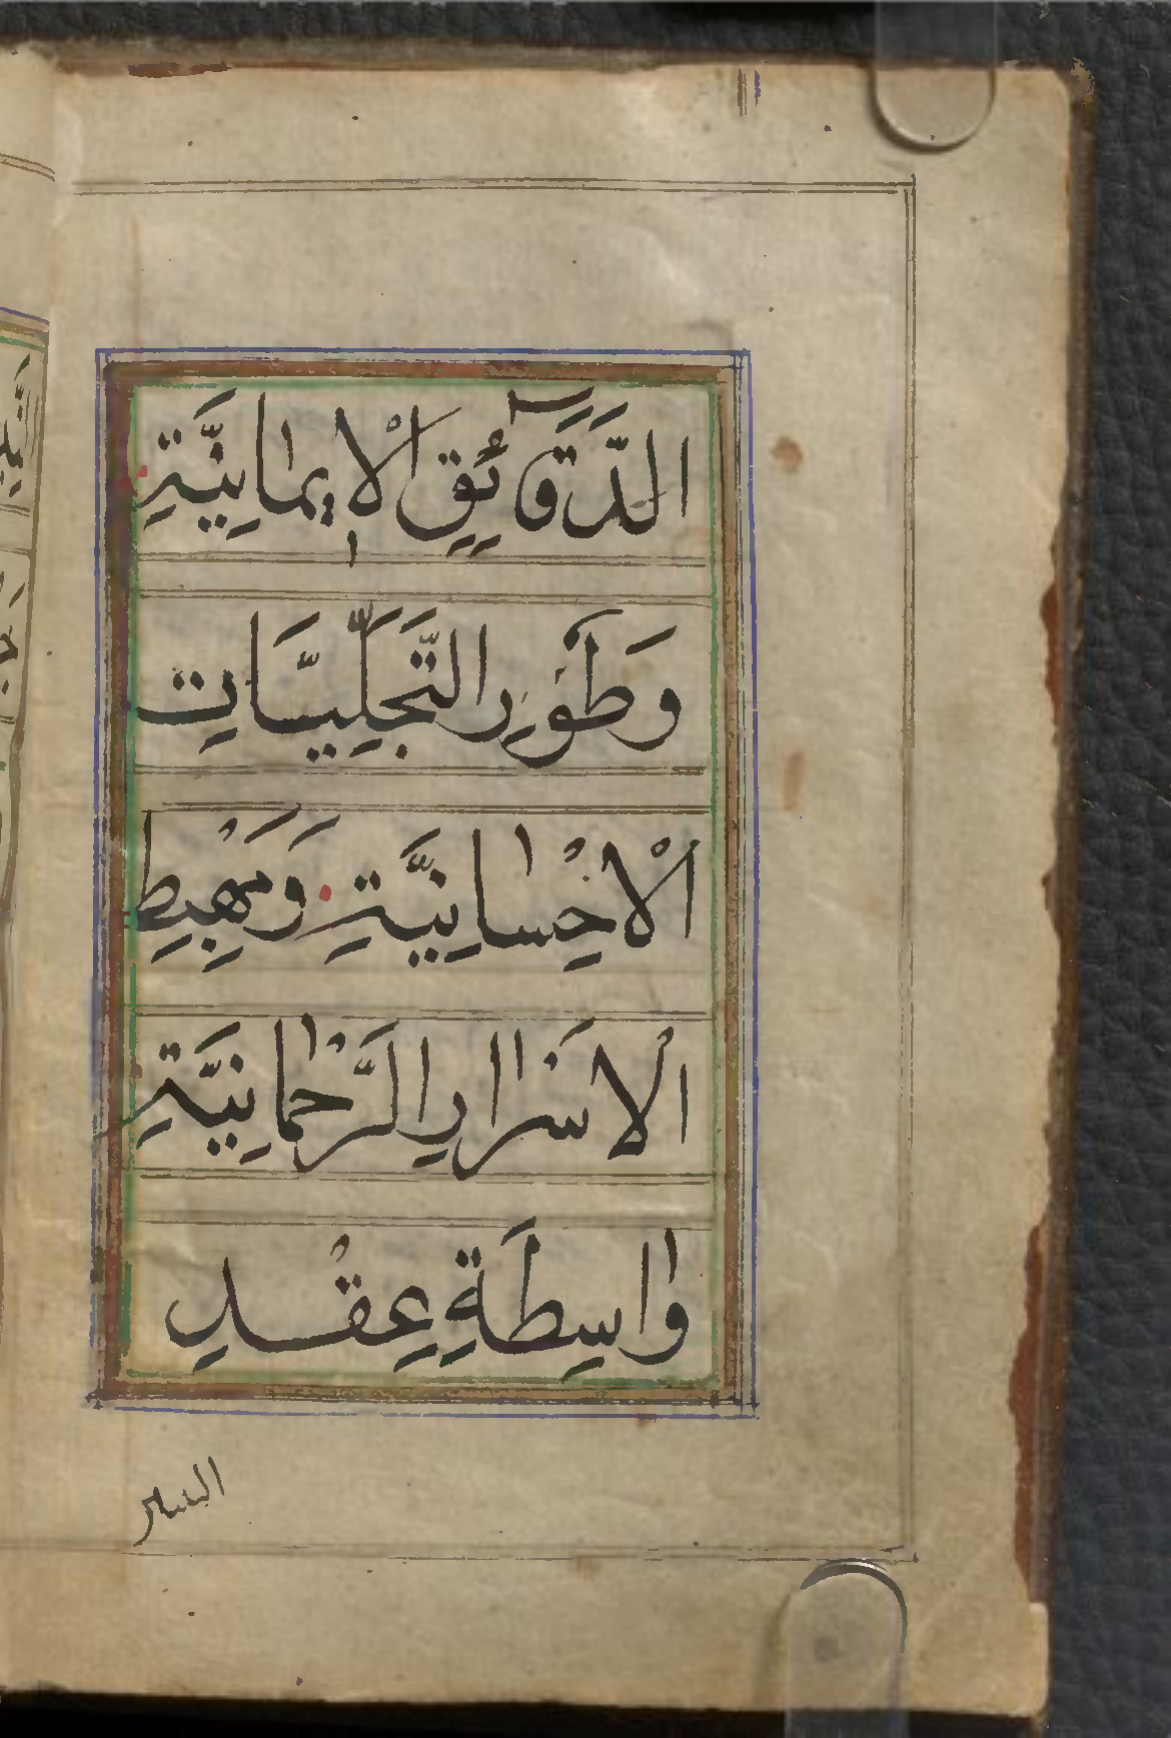 الدَّقَآئِقِ الْاِيمَانِيَّةِ
وَطَوْرِ التَّجَلِّيَاتِ
الْاِحْسَانِيَّةِ وَمَهْبِطِ
الْاَسْرَارِ الرَّحْمَانِيَّةِ
وَاسِطَةِ عِقْدِ